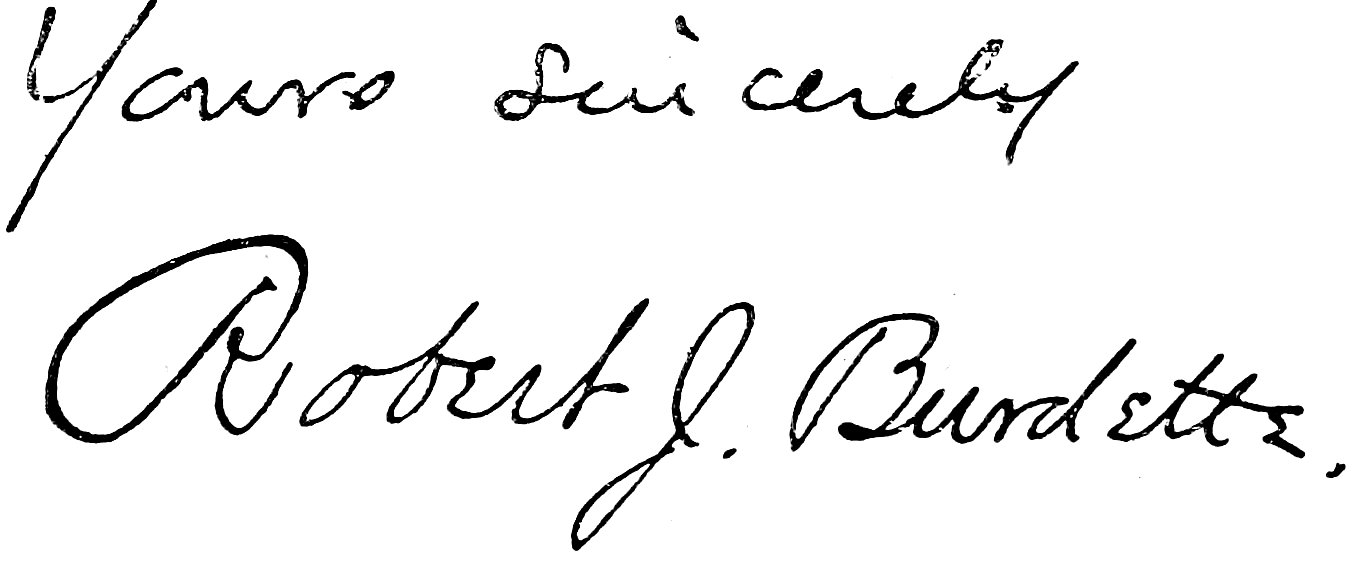 Yours sincerely
Robert J. Burdette.